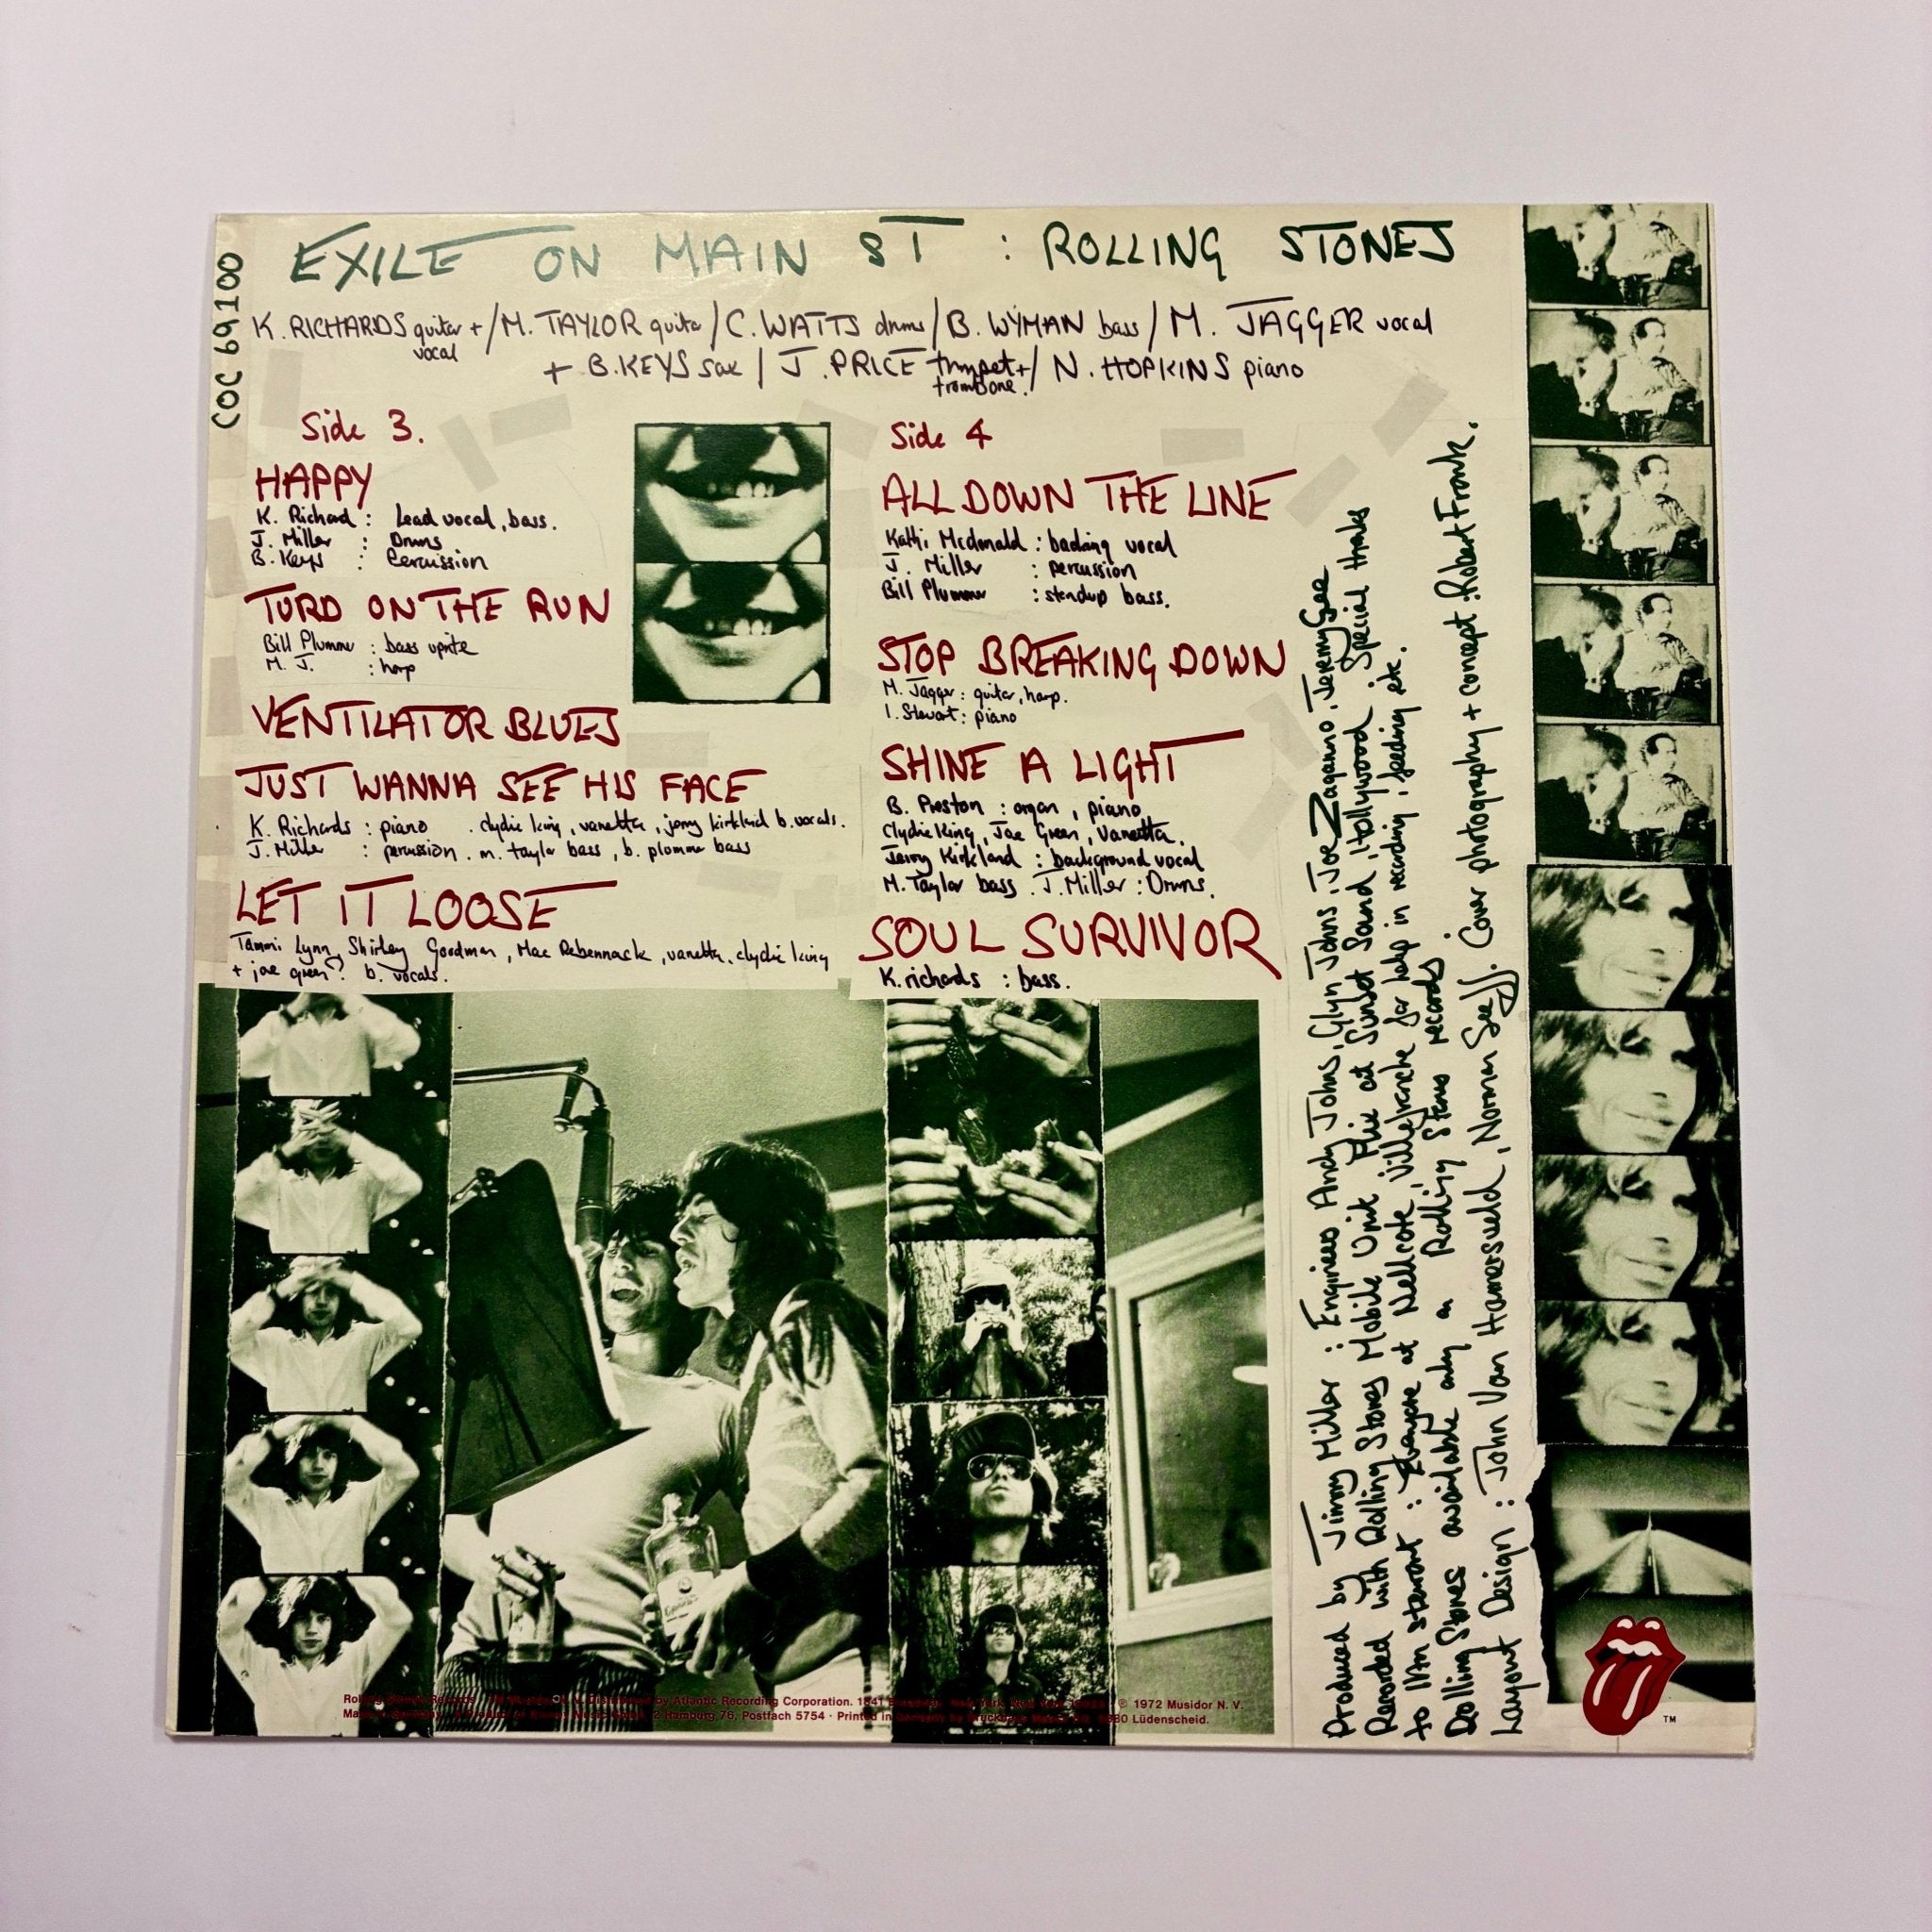 COC 69100
EXILE ON MAIN ST : ROLLING STONES
K. RICHARDS guitar + / M. TAYLOR guitar / C. WATTS drums / B. WYMAN bass / M. JAGGER vocal
vocal
+ B. KEYS sax / J. PRICE trumpet + / N. HOPKINS piano
trombone.
Side 3.
HAPPY
K. Richard : Lead vocal, bass.
J. Miller : Drums
B. Keys : Percussion
TURD ON THE RUN
Bill Plummer : bass uprite
M. J. : harp
VENTILATOR BLUES
JUST WANNA SEE HIS FACE
K. Richards : piano . clydie king, vanetta, jerry kirkland b. vocals.
J. Miller : percussion . m. taylor bass, b. plommer bass
LET IT LOOSE
Tammi Lynn, Shirley Goodman, Mac Rebennack, vanetta, clydie king
+ joe green? b. vocals.
Side 4
ALL DOWN THE LINE
Kathi Mcdonald : backing vocal
J. Miller : percussion
Bill Plummer : standup bass.
STOP BREAKING DOWN
M. Jagger : guitar, harp.
I. Stewart : piano
SHINE A LIGHT
B. Preston : organ, piano
Clydie King, Joe Green, Vanetta,
Jerry Kirkland : background vocal
M. Taylor bass . J. Miller : Drums.
SOUL SURVIVOR
K. richards : bass.
Produced by Jimmy Miller : Engineers Andy Johns, Glyn Johns, Joe Zagarino, Jeremy Gee
Recorded with Rolling Stones Mobile Unit + Mix at Sunset Sound, Hollywood . Special thanks
to Ian stewart : Everyone at Nellcote, Villefranche for help in recording, feeding etc.
Rolling Stones available only on Rolling Stones records
Layout Design : John Van Hamersveld, Norman Seeff. Cover photography + concept . Robert Frank.
Distributed by Atlantic Recording Corporation. 1841 ℗ 1972 Musidor N. V.
2 Hamburg 76, Postfach 5754 · Printed in Lüdenscheid.
TM